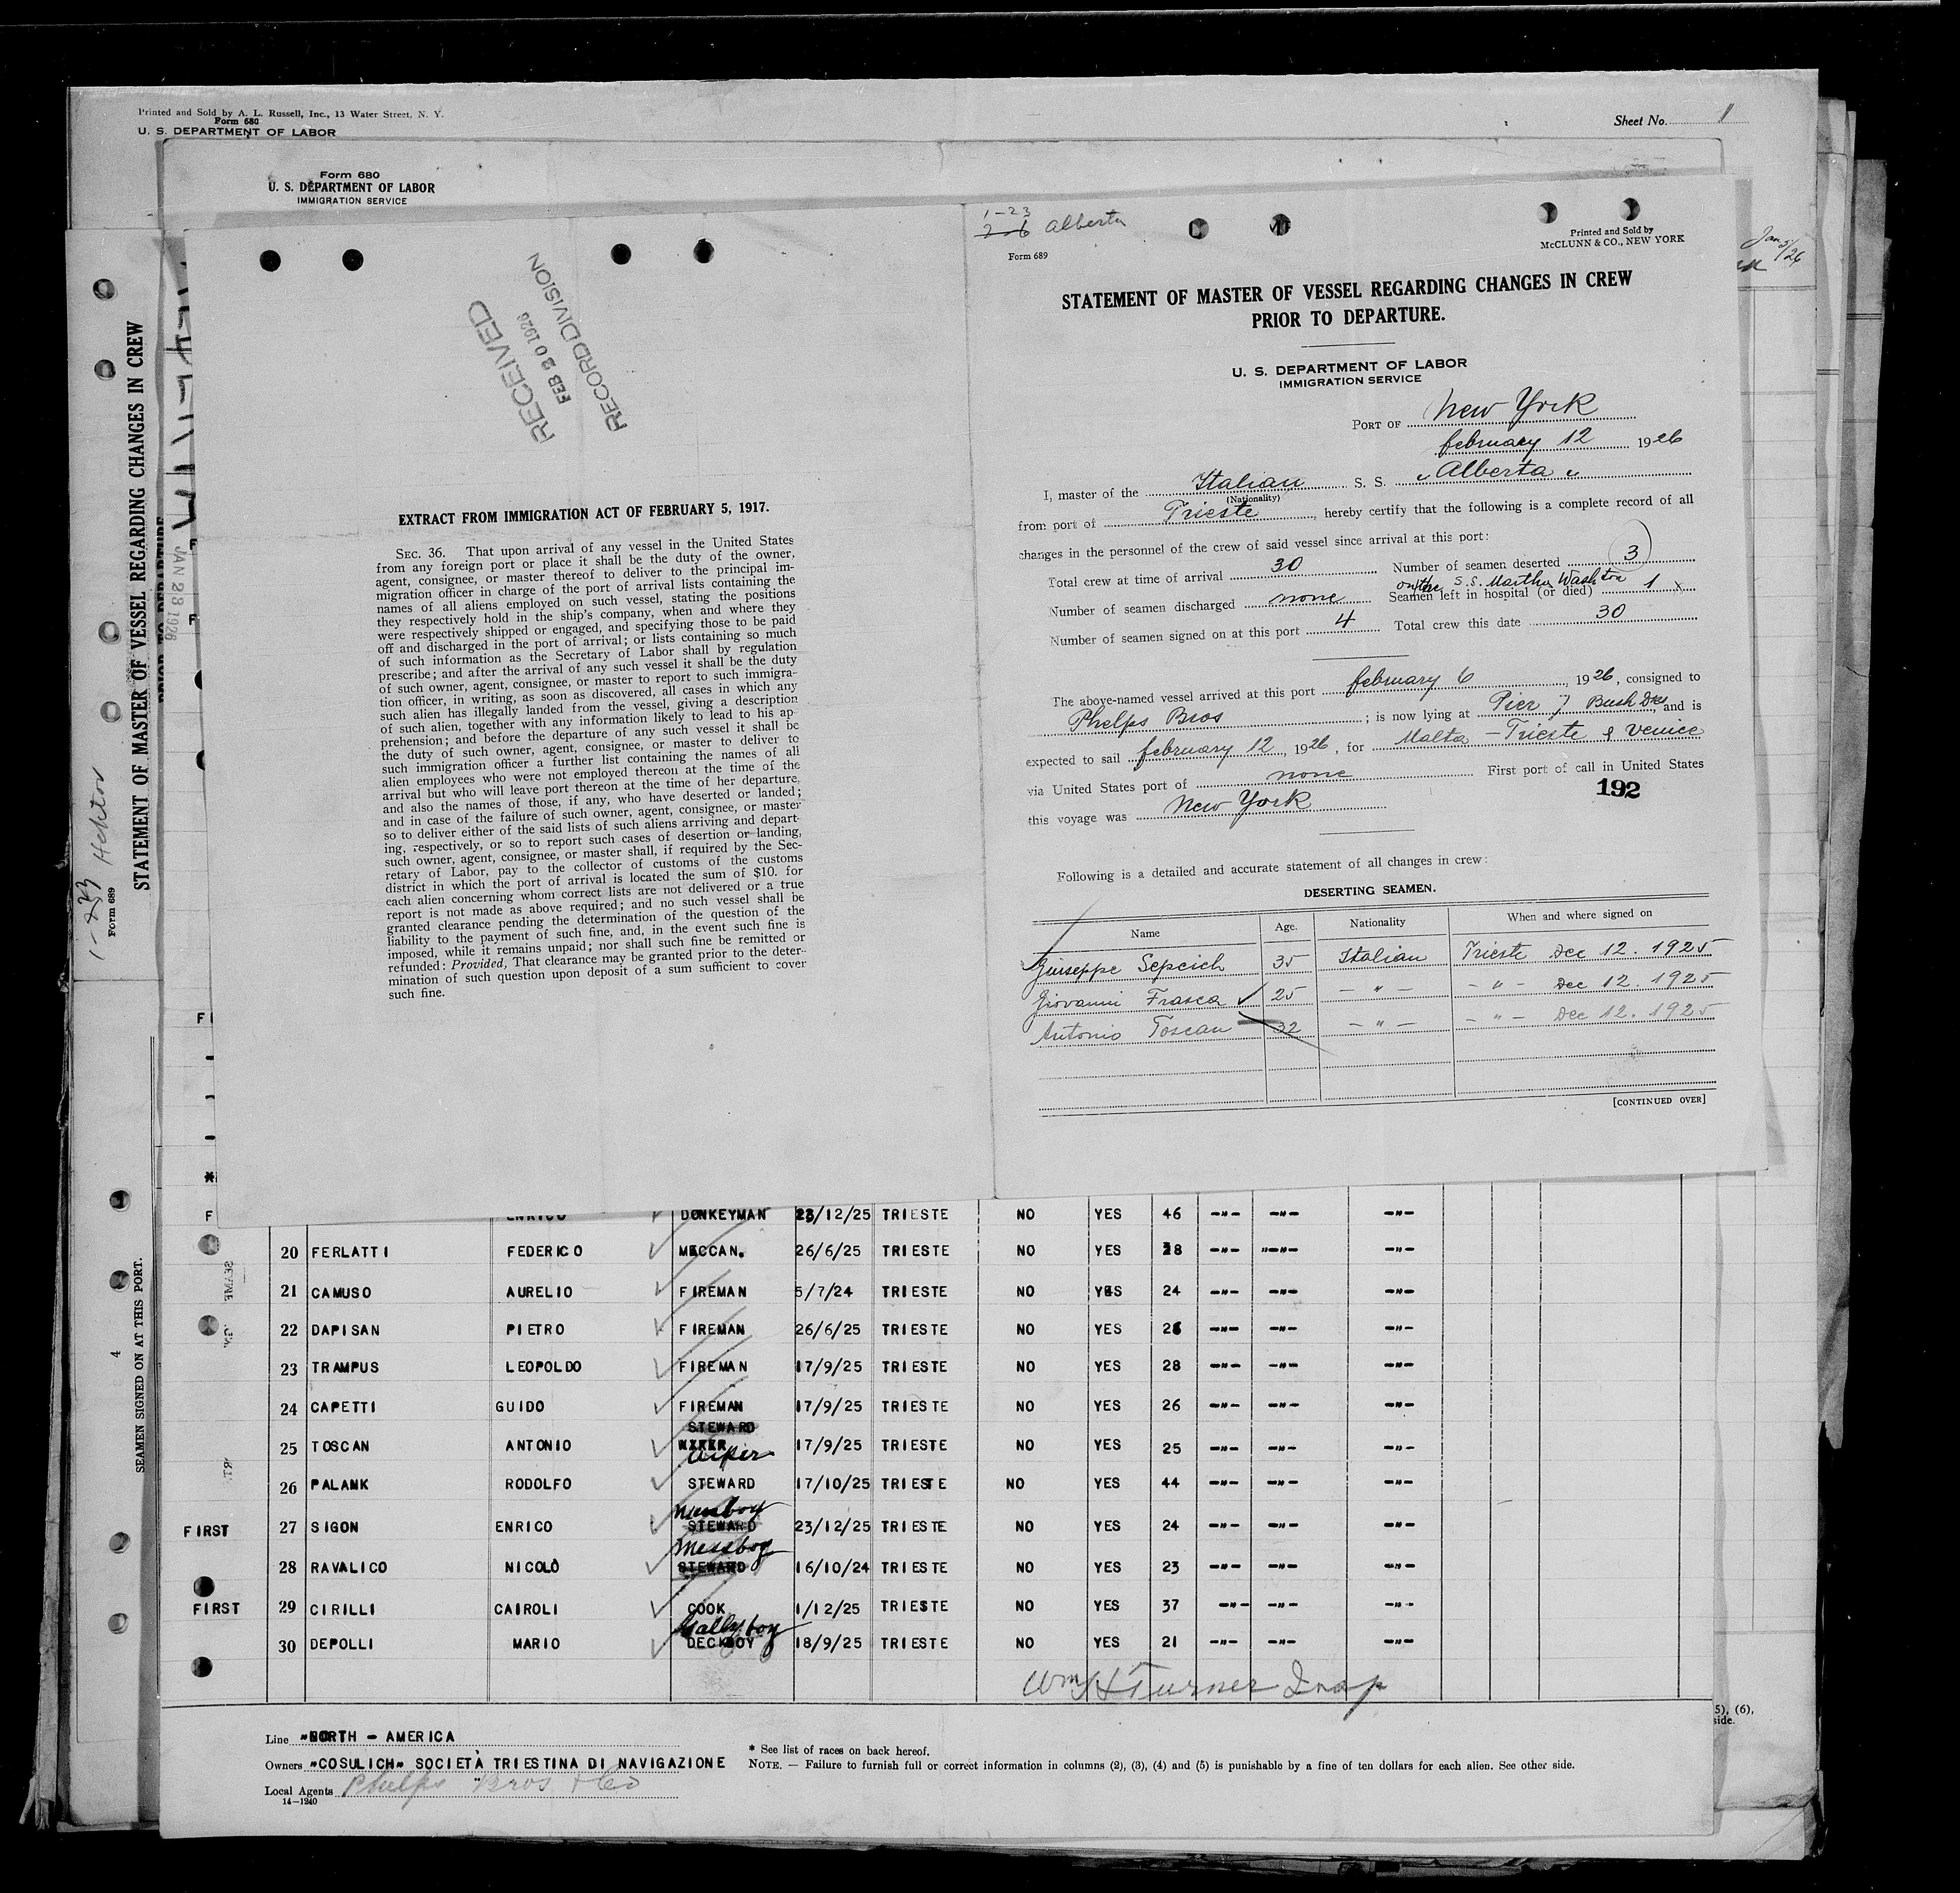 Printed and Sold by A. L. Russell, Inc., 13 Water Street, N. Y.
Form 680
U. S. DEPARTMENT OF LABOR
Sheet No. 1
Form 680
U. S. DEPARTMENT OF LABOR
IMMIGRATION SERVICE
Jan 5/26
1-23 Hektor
Form 689
STATEMENT OF MASTER OF VESSEL REGARDING CHANGES IN CREW
PRIOR TO DEPARTURE
JAN 28 1926
4
SEAMEN SIGNED ON AT THIS PORT.
RECEIVED
FEB 20 1926
RECORD DIVISION
EXTRACT FROM IMMIGRATION ACT OF FEBRUARY 5, 1917.
SEC. 36. That upon arrival of any vessel in the United States
from any foreign port or place it shall be the duty of the owner,
agent, consignee, or master thereof to deliver to the principal im-
migration officer in charge of the port of arrival lists containing the
names of all aliens employed on such vessel, stating the positions
they respectively hold in the ship's company, when and where they
were respectively shipped or engaged, and specifying those to be paid
off and discharged in the port of arrival; or lists containing so much
of such information as the Secretary of Labor shall by regulation
prescribe; and after the arrival of any such vessel it shall be the duty
of such owner, agent, consignee, or master to report to such immigra-
tion officer, in writing, as soon as discovered, all cases in which any
such alien has illegally landed from the vessel, giving a description
of such alien, together with any information likely to lead to his ap-
prehension; and before the departure of any such vessel it shall be
the duty of such owner, agent, consignee, or master to deliver to
such immigration officer a further list containing the names of all
alien employees who were not employed thereon at the time of the
arrival but who will leave port thereon at the time of her departure,
and also the names of those, if any, who have deserted or landed;
and in case of the failure of such owner, agent, consignee, or master
so to deliver either of the said lists of such aliens arriving and depart-
ing, respectively, or so to report such cases of desertion or landing,
such owner, agent, consignee, or master shall, if required by the Sec-
retary of Labor, pay to the collector of customs of the customs
district in which the port of arrival is located the sum of $10. for
each alien concerning whom correct lists are not delivered or a true
report is not made as above required; and no such vessel shall be
granted clearance pending the determination of the question of the
liability to the payment of such fine, and, in the event such fine is
imposed, while it remains unpaid; nor shall such fine be remitted or
refunded: Provided, That clearance may be granted prior to the deter-
mination of such question upon deposit of a sum sufficient to cover
such fine.
1-23
2-6 Alberta
Form 689
Printed and Sold by
McCLUNN & CO., NEW YORK
STATEMENT OF MASTER OF VESSEL REGARDING CHANGES IN CREW
PRIOR TO DEPARTURE.
U. S. DEPARTMENT OF LABOR
IMMIGRATION SERVICE
PORT OF New York
february 12 1926
I, master of the Italian S. S. "Alberta"
(Nationality)
from port of Trieste, hereby certify that the following is a complete record of all
changes in the personnel of the crew of said vessel since arrival at this port:
Total crew at time of arrival 30 Number of seamen deserted 3
on the S.S. Martha Washton
Number of seamen discharged none Seamen left in hospital (or died) 1 x
Number of seamen signed on at this port 4 Total crew this date 30
The above-named vessel arrived at this port february 6, 1926, consigned to
Phelps Bros; is now lying at Pier 7 Bush Dks, and is
expected to sail february 12, 1926, for Malta - Trieste & Venice
via United States port of none First port of call in United States
this voyage was New York
192
Following is a detailed and accurate statement of all changes in crew:
DESERTING SEAMEN.
Name Age. Nationality When and where signed on
Giuseppe Sepcich 35 Italian Trieste Dec 12. 1925
Giovanni Frasca 25 - " - - " - Dec 12. 1925
Antonio Toscan 32 - " - - " - Dec 12. 1925
[CONTINUED OVER]
ENRICO DONKEYMAN 23/12/25 TRIESTE NO YES 46 -"- -"- -"-
20 FERLATTI FEDERICO MECCAN. 26/6/25 TRIESTE NO YES 28 -"- -"- -"-
21 CAMUSO AURELIO FIREMAN 5/7/24 TRIESTE NO YES 24 -"- -"- -"-
22 DAPISAN PIETRO FIREMAN 26/6/25 TRIESTE NO YES 26 -"- -"- -"-
23 TRAMPUS LEOPOLDO FIREMAN 17/9/25 TRIESTE NO YES 28 -"- -"- -"-
24 CAPETTI GUIDO FIREMAN 17/9/25 TRIESTE NO YES 26 -"- -"- -"-
STEWARD
25 TOSCAN ANTONIO WIPER 17/9/25 TRIESTE NO YES 25 -"- -"- -"-
Wiper
26 PALANK RODOLFO STEWARD 17/10/25 TRIESTE NO YES 44 -"- -"- -"-
Messboy
FIRST 27 SIGON ENRICO STEWARD 23/12/25 TRIESTE NO YES 24 -"- -"- -"-
Messboy
28 RAVALICO NICOLÒ STEWARD 16/10/24 TRIESTE NO YES 23 -"- -"- -"-
FIRST 29 CIRILLI CAIROLI COOK 1/12/25 TRIESTE NO YES 37 -"- -"- -"-
Gallyboy
30 DEPOLLI MARIO DECKBOY 18/9/25 TRIESTE NO YES 21 -"- -"- -"-
Wm H Turner Insp
Line "NORTH - AMERICA
Owners "COSULICH" SOCIETÀ TRIESTINA DI NAVIGAZIONE
Local Agents Phelps Bros & Co
14-1240
* See list of races on back hereof.
NOTE. — Failure to furnish full or correct information in columns (2), (3), (4) and (5) is punishable by a fine of ten dollars for each alien. See other side.
5), (6),
side.